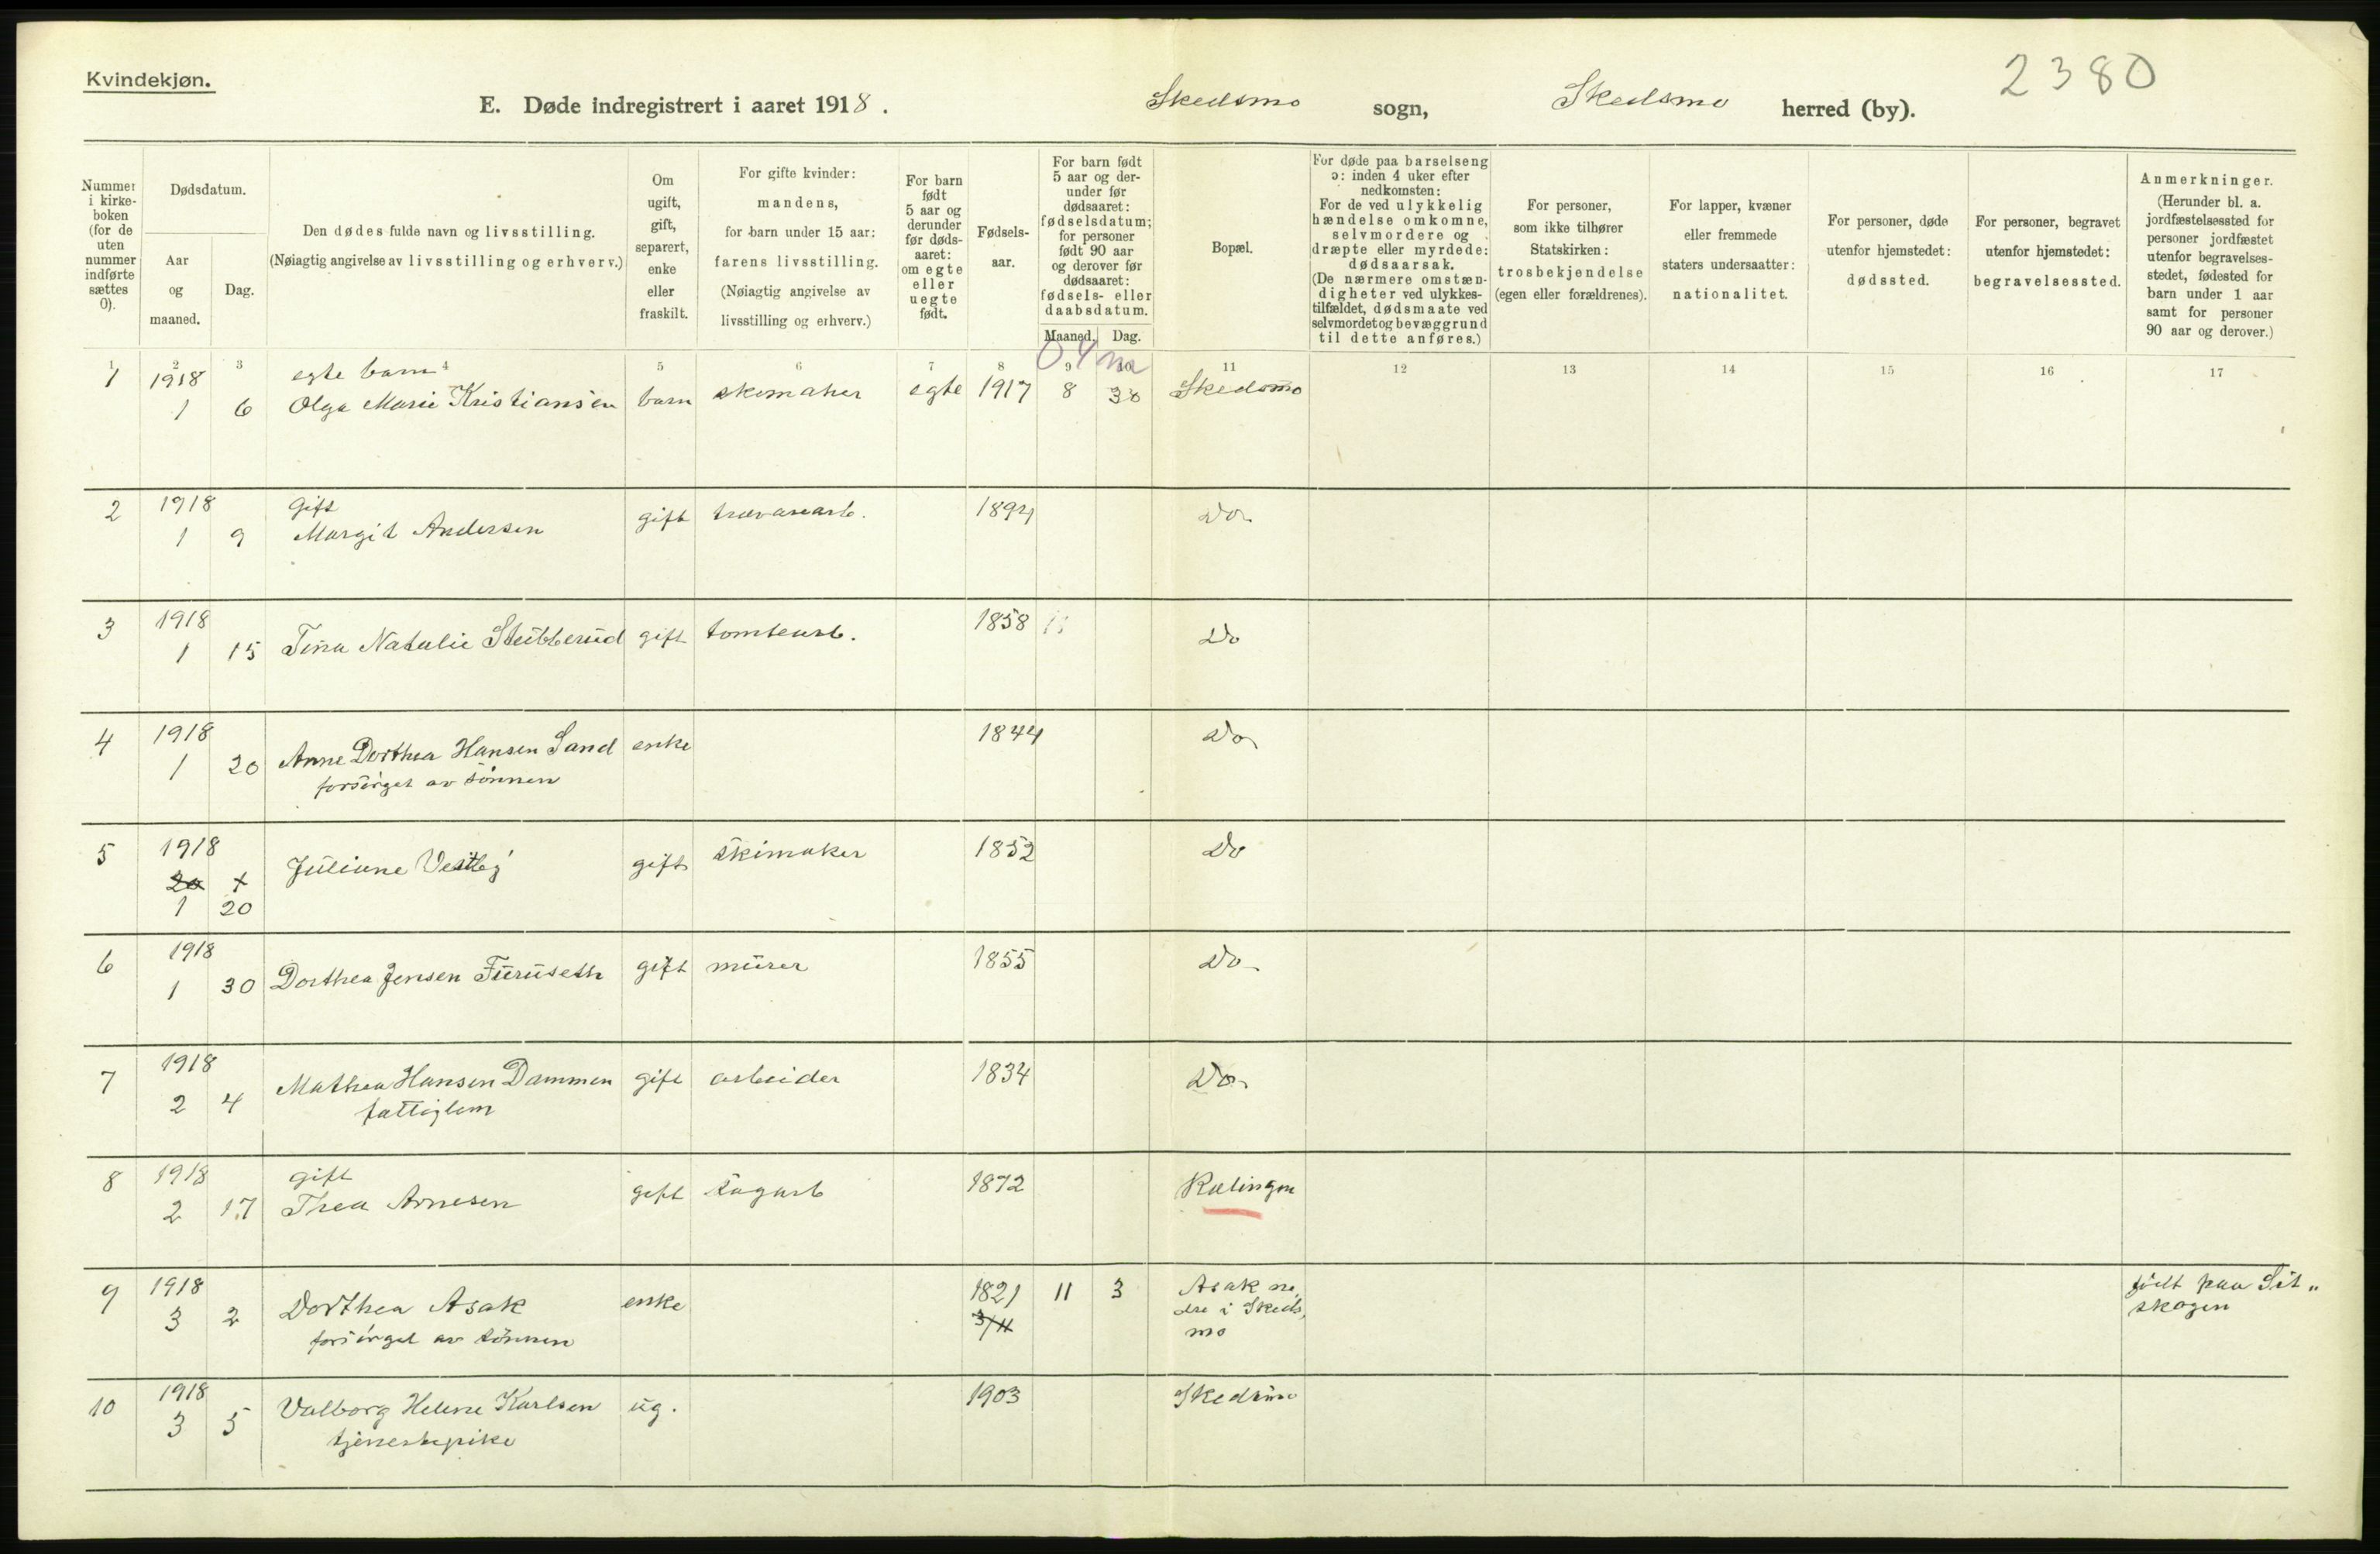 Kvindekjøn.
2380
E. Døde indregistrert i aaret 1918. Skedsmo sogn, Skedsmo herred (by).
Nummer i kirke-boken (for de uten nummer indførte sættes 0).
Dødsdatum.
Aar og maaned.
Dag.
Den dødes fulde navn og livsstilling.
(Nøiagtig angivelse av livsstilling og erhverv.)
Om ugift, gift, separert, enke eller fraskilt.
For gifte kvinder: mandens, for barn under 15 aar: farens livsstilling. (Nøiagtig angivelse av livsstilling og erhverv.)
For barn født 5 aar og derunder før døds-aaret: om egte eller uegte født.
Fødsels-aar.
For barn født 5 aar og der-under før dødsaaret: fødselsdatum; for personer født 90 aar og derover før dødsaaret: fødsels- eller daabsdatum.
Maaned. Dag.
Bopæl.
For døde paa barselseng ɔ: inden 4 uker efter nedkomsten: For de ved ulykkelig hændelse omkomne, selvmordere og dræpte eller myrdede: dødsaarsak. (De nærmere omstæn-digheter ved ulykkes-tilfældet, dødsmaate ved selvmordet og bevæggrund til dette anføres.)
For personer, som ikke tilhører Statskirken: trosbekjendelse (egen eller forældrenes).
For lapper, kvæner eller fremmede staters undersaatter: nationalitet.
For personer, døde utenfor hjemstedet: dødssted.
For personer, begravet utenfor hjemstedet: begravelsessted.
Anmerkninger. (Herunder bl. a. jordfæstelsessted for personer jordfæstet utenfor begravelses-stedet, fødested for barn under 1 aar samt for personer 90 aar og derover.)
1 2 3 4 5 6 7 8 9 10 11 12 13 14 15 16 17
0 4 m
1 1918 egte barn
1 6 Olga Marie Kristiansen barn skomaker egte 1917 8 30 Skedsmo
2 1918 Gift
1 9 Margit Andersen gift trævarearb. 1894 Do
3 1918
1 15 Tina Natalie Stubberud gift tomtearb. 1858 Do
4 1918
1 20 Anne Dorthea Hansen Sand enke 1844 Do
forsörget av sönnen
5 1918
20 x Juliane Vestby gift skimaker 1852 Do
1 20
6 1918
1 30 Dorthea Jensen Furuseth gift murer 1855 Do
7 1918
2 4 Mathea Hansen Dammen gift arbeider 1834 Do
fattiglem
8 1918 gift
2 17 Thea Arnesen gift sagarb 1872 Rælingen
9 1918
3 2 Dorthea Asak enke 1821 11 3 Asak ne,
dre i Skeds,
mo
3/11
forsörget av sönnen
födt paa Sét„
skogen
10 1918
3 5 Valborg Helene Karlsen ug. 1903 Skedsmo
tjenestepike